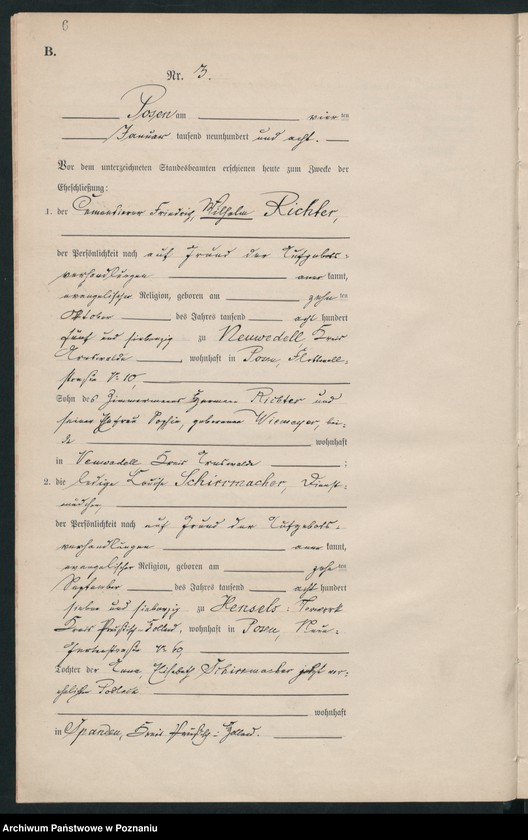 6
B.
Nr. 3.
Posen am vier ten
Januar tausend neunhundert und acht.
Vor dem unterzeichneten Standesbeamten erschienen heute zum Zwecke der
Eheschließung:
1. der Friedrich Wilhelm Richter,
der Persönlichkeit nach auf Grund der Aufgebots-
verhandlungen aner kannt,
evangelischer Religion, geboren am zehn ten
Oktober des Jahres tausend acht hundert
fünf und siebenzig zu Neuwedell, Kreis
Arnswalde, wohnhaft in Posen,
straße Nr 10,
Sohn des Zimmermanns Hermann Richter und
seiner Ehefrau Sophie, geborenen bei-
de wohnhaft
in Neuwedell, Kreis Arnswalde ;
2. die ledige Louise Schirrmacher, Dienst-
mädchen,
der Persönlichkeit nach auf Grund der Aufgebots-
verhandlungen aner kannt,
evangelischer Religion, geboren am zehn ten
September des Jahres tausend acht hundert
sieben und siebenzig zu Hensels-
Kreis Preußisch-Holland, wohnhaft in Posen, Neue-
Gartenstraße Nr 60,
Tochter der Anna Elisabeth Schirrmacher jetzt ver-
ehelichte
wohnhaft
in Spanden, Kreis Preußisch-Holland.
Archiwum Państwowe w Poznaniu